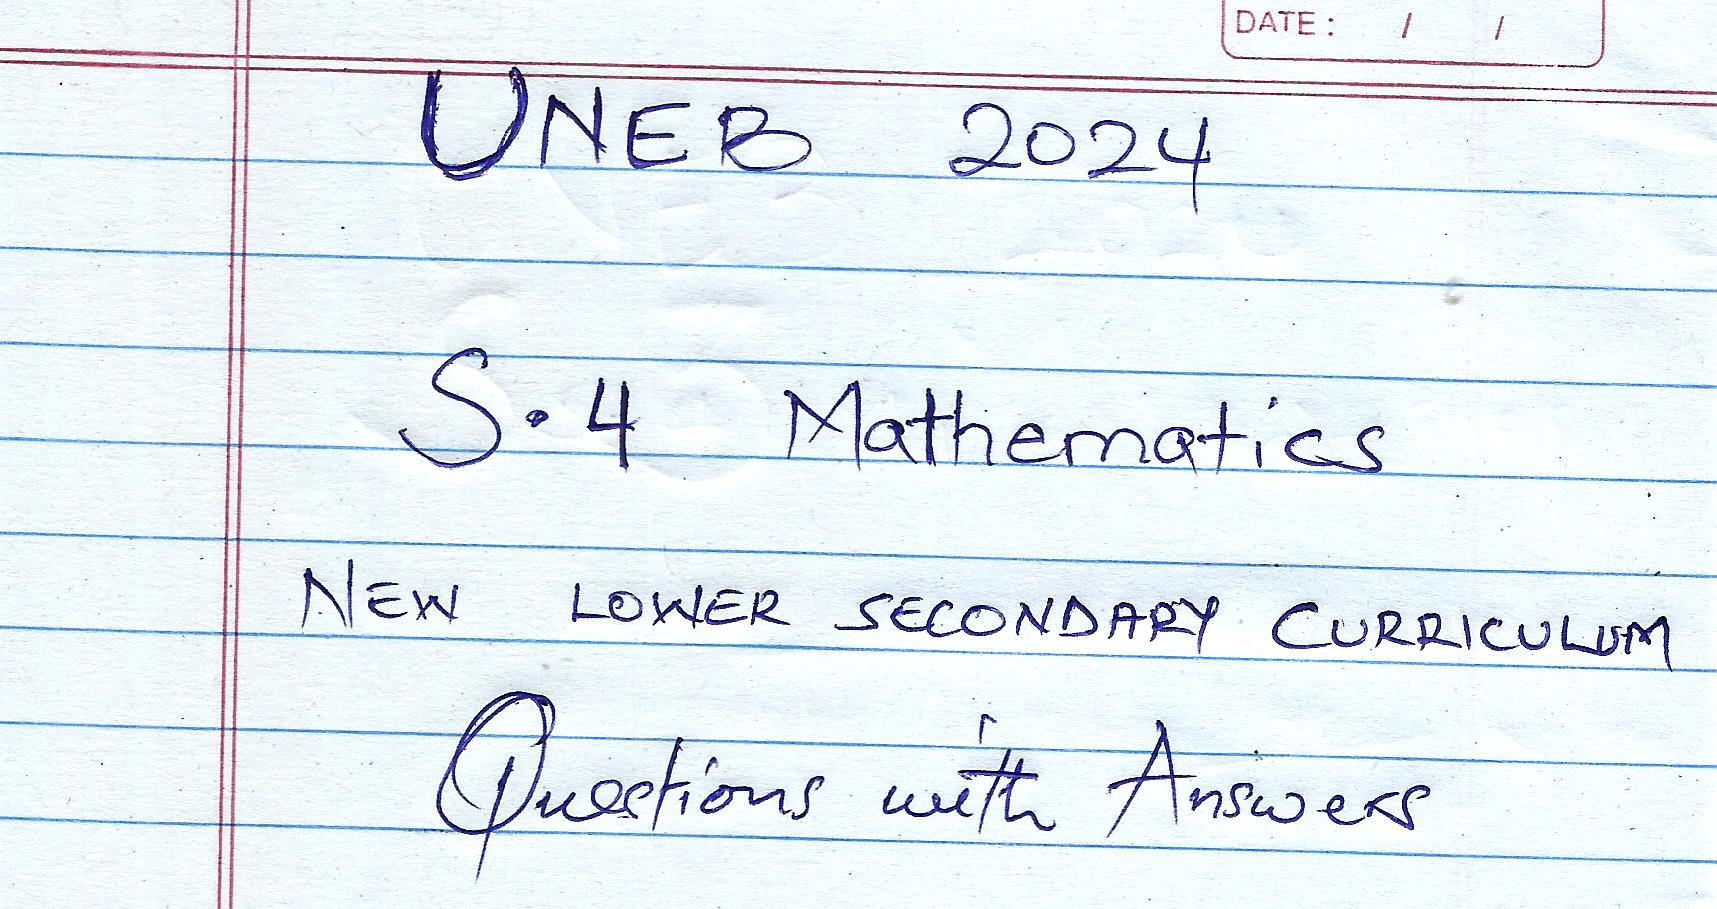 DATE: / /
UNEB 2024
S.4 Mathematics
NEW LOWER SECONDARY CURRICULUM
Questions with Answers